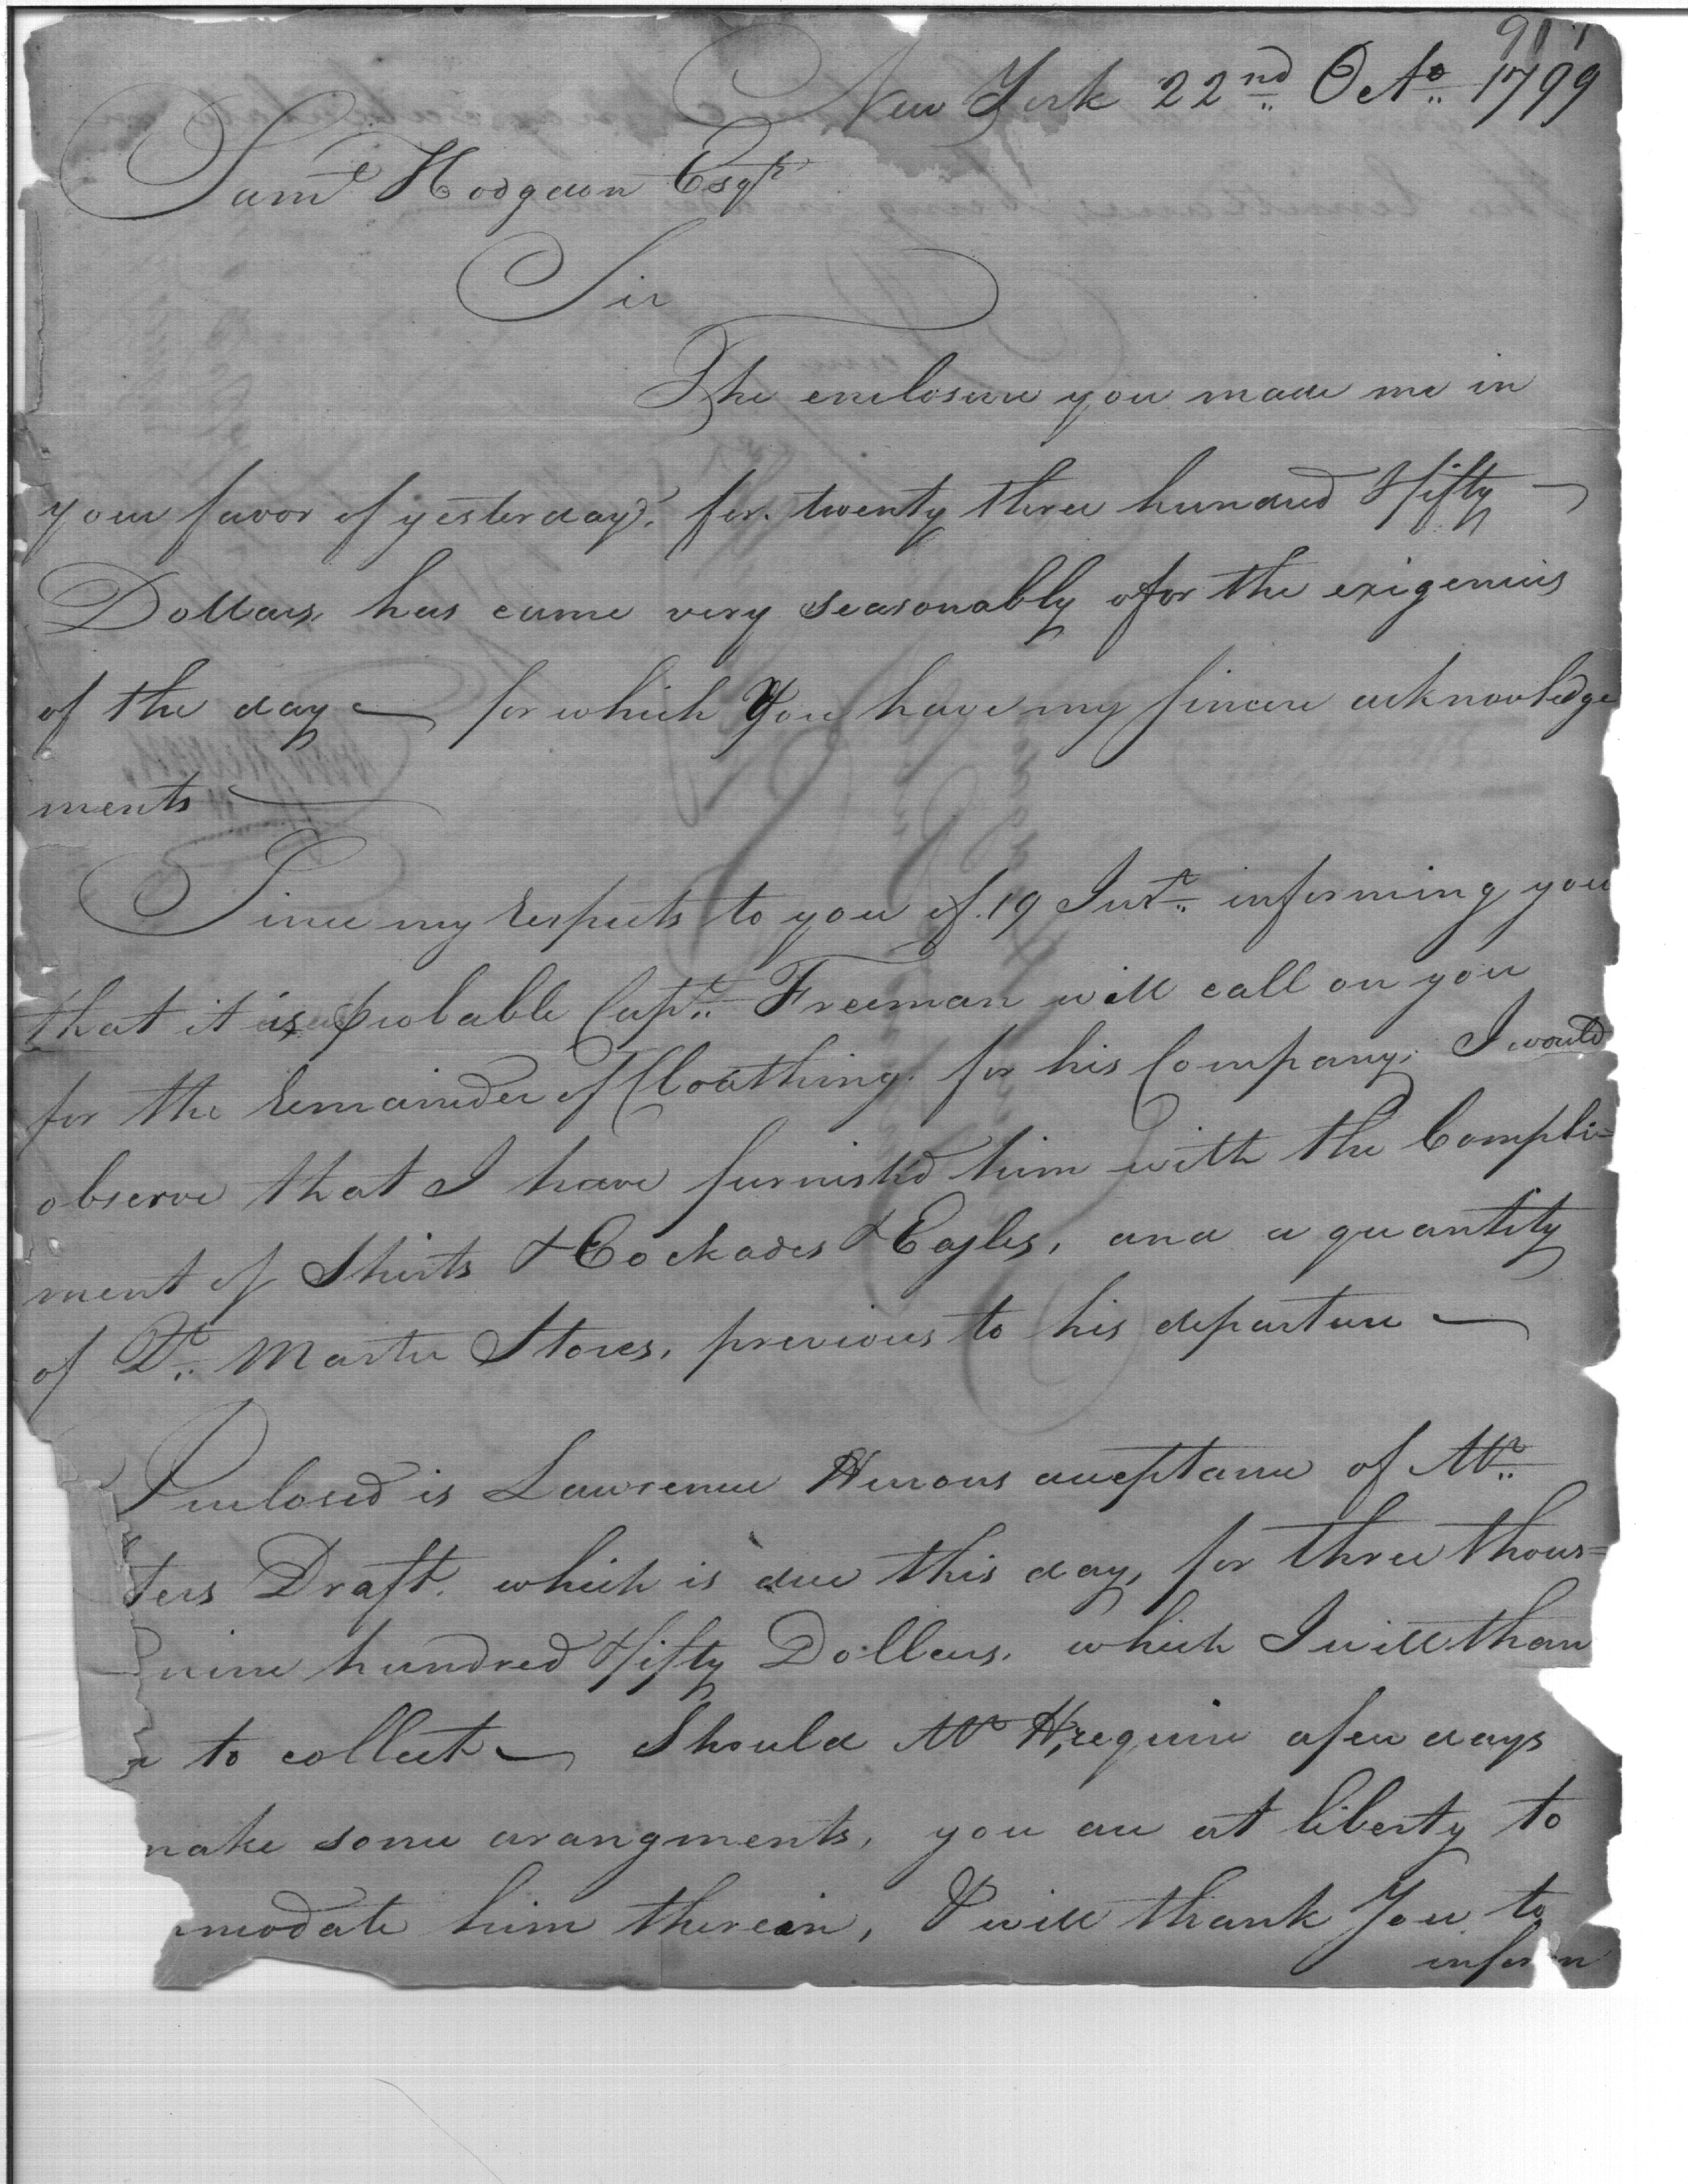 New York 22nd Octo 1799
Saml Hodgdon Esqr
Sir
The enclosure you made me in
your favor of yesterday, for twenty three hundred & fifty
Dollars, has came very seasonably for the exigencies
of the day — for which You have my sincere acknowledge
ments
Since my respects to you of 19 Inst. informing you
that it is probable Capt. Freeman will call on you
for the remainder of Cloathing for his Company, I would
observe that I have furnish'd him with the Compli=
ment of Shirts & Cockades & Eagles, and a quantity
of Qr. Master Stores, previous to his departure —
Inclosed is Lawrence acceptance of Mr.
ters Draft. which is due this day, for three thous=
nine hundred & fifty Dollars. which I will than
to collect — Should Mr H, require a few days
make some arangments, you are at liberty to
mmodate him therein, I will thank You to
inform